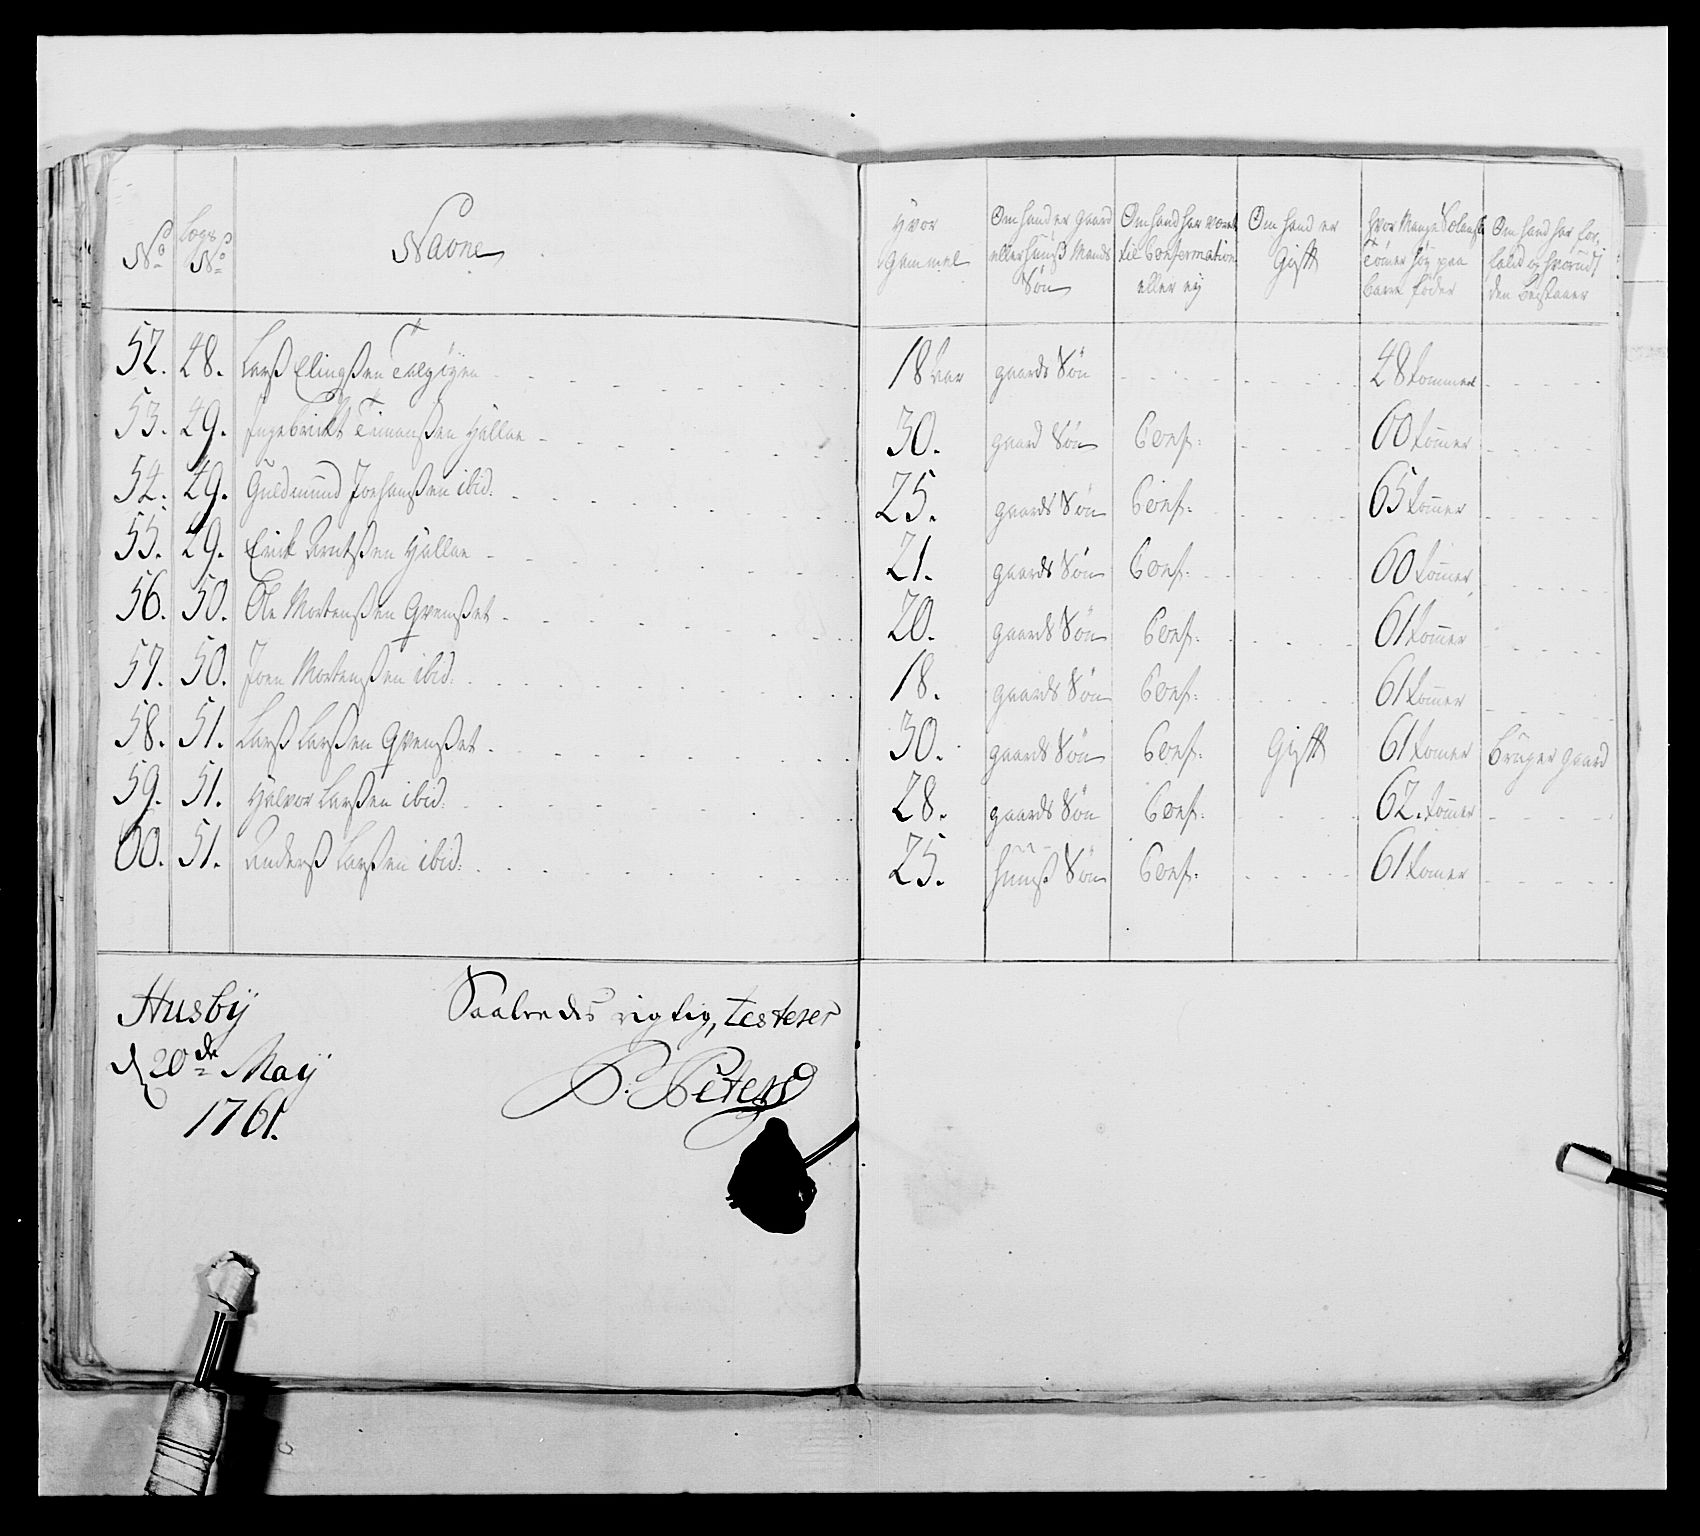 No
Legs No
Navne
Hvor gammel
Om hand er gaard eller huuß Mands Søn
Om hand har været til Confermation eller ej
Om hand er Gift
hvor Mange Tømer høy paa barre føder
Om hand har forfald og hvorudj den bestaaer
52. 48. Larß Elingßen Talgøyen 18 Aar gaards Søn 48 tommer
53. 49. Ingebricht Timanßen Hallan 30. gaard Søn Conf: 60 tomer
54. 49. Guldmund Joehanßen ibid. 25. gaards Søn Conf: 65 tomer
55. 49. Erick Arntßen Hallan 21. gaards Søn Conf: 60 tomer
56. 50. Ole Mortenßen Qvemßet 20. gaards Søn Conf: 61 tomer
57. 50. Joen Mortenßen ibid: 18. gaards Søn Conf: 61 tomer
58. 51. Larß Larßen Qvemßet 30. gaards Søn Conf: Gift 61 tomer bruger gaard
59. 51. Halvor Larßen ibid: 28. gaards Søn Conf: 62. tomer
60. 51. Anderß Larßen ibid: 25. huuß Søn Conf: 61 tomer
Husbÿ
d 20de Maÿ
1761.
Saaledes rigtig, testerer
P: Peters